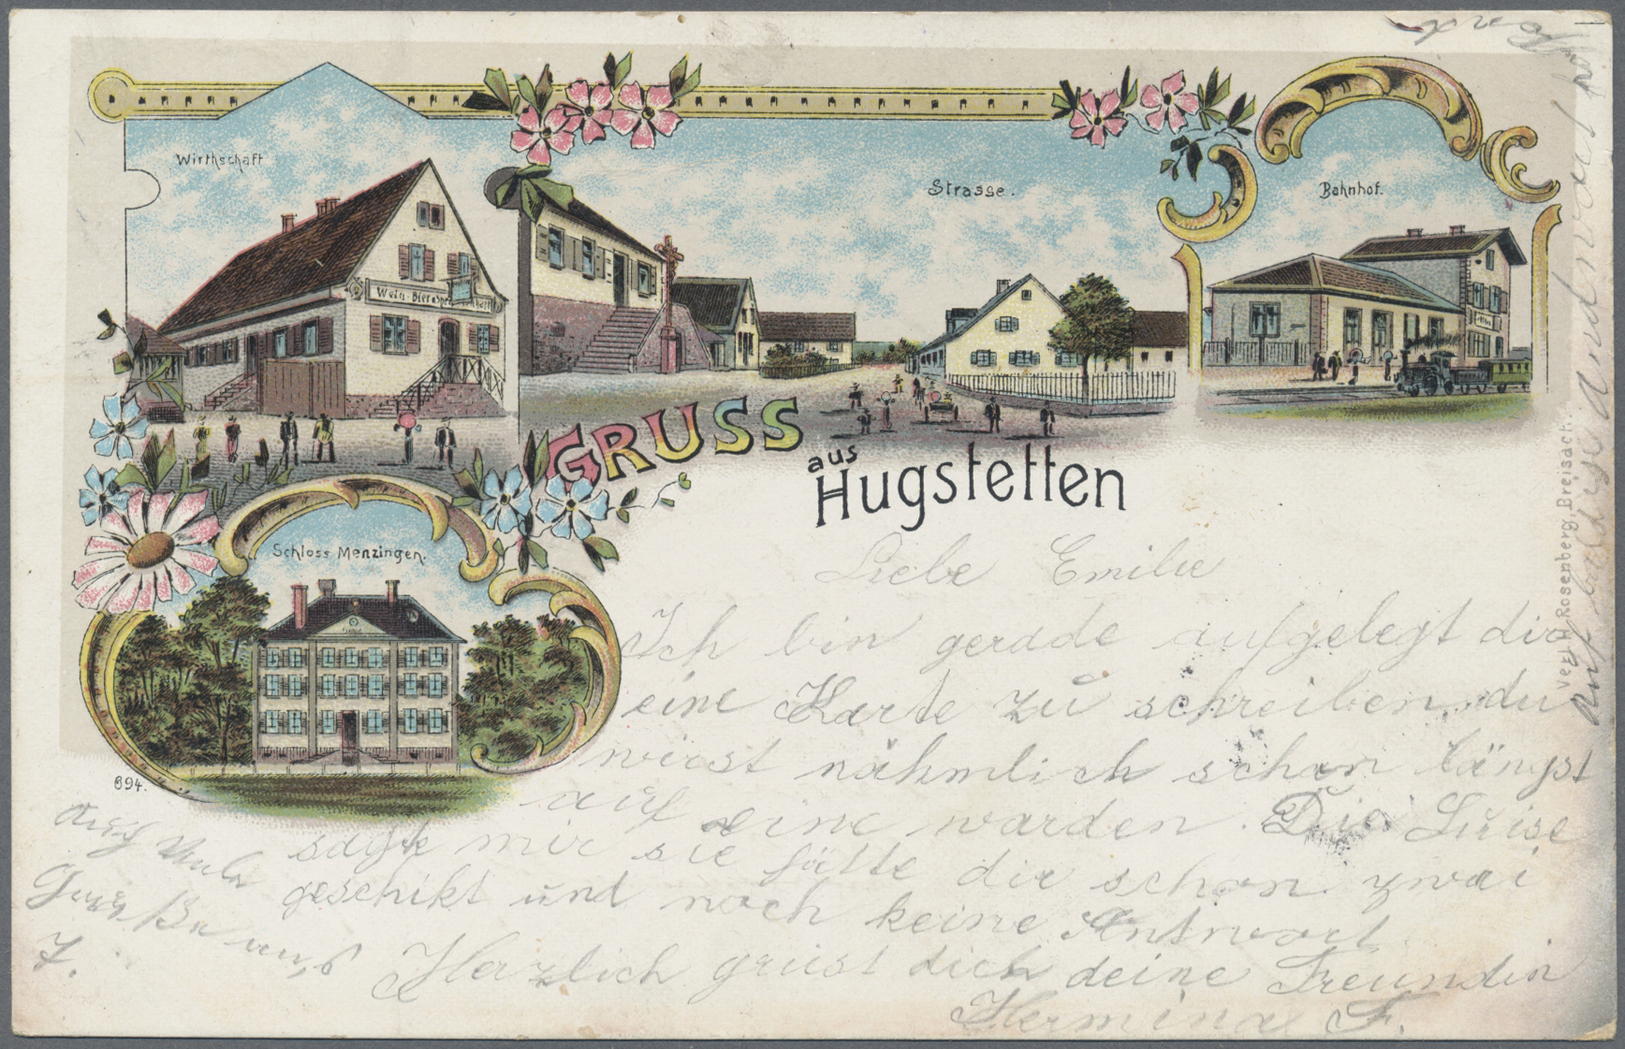 Wirthschaft
Strasse.
Bahnhof.
GRUSS
aus
Hugstetten
Schloss Menzingen.
694.
Verl. A. Rosenberg, Breisach.
Liebe Emilie
Ich bin gerade aufgelegt dir
eine Karte zu schreiben du
wirst nähmlich schon längst
auf eine warden. Die Luise
sagte mir sie hätte dir schon zwei
geschikt und noch keine Antwort
Herzlich grüst dich deine Freundin
Hermina F.
auf baldige andwort